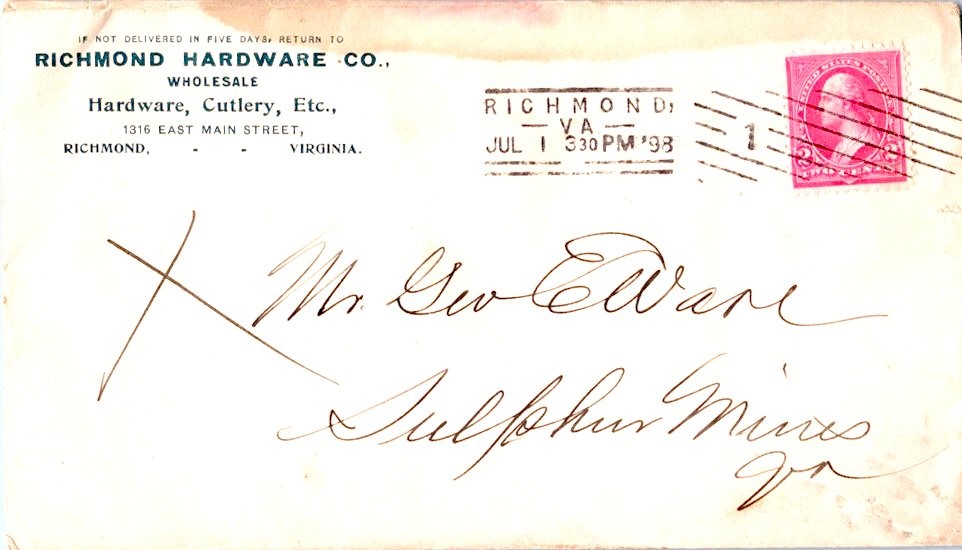 IF NOT DELIVERED IN FIVE DAYS, RETURN TO
RICHMOND HARDWARE CO.,
WHOLESALE
Hardware, Cutlery, Etc.,
1316 EAST MAIN STREET,
RICHMOND, - - VIRGINIA.
RICHMOND,
— VA —
JUL 1 330PM '98
1
UNITED STATES POSTAGE
2 2
TWO CENTS
Mr. Geo E Ware
Sulphur Mines
Va